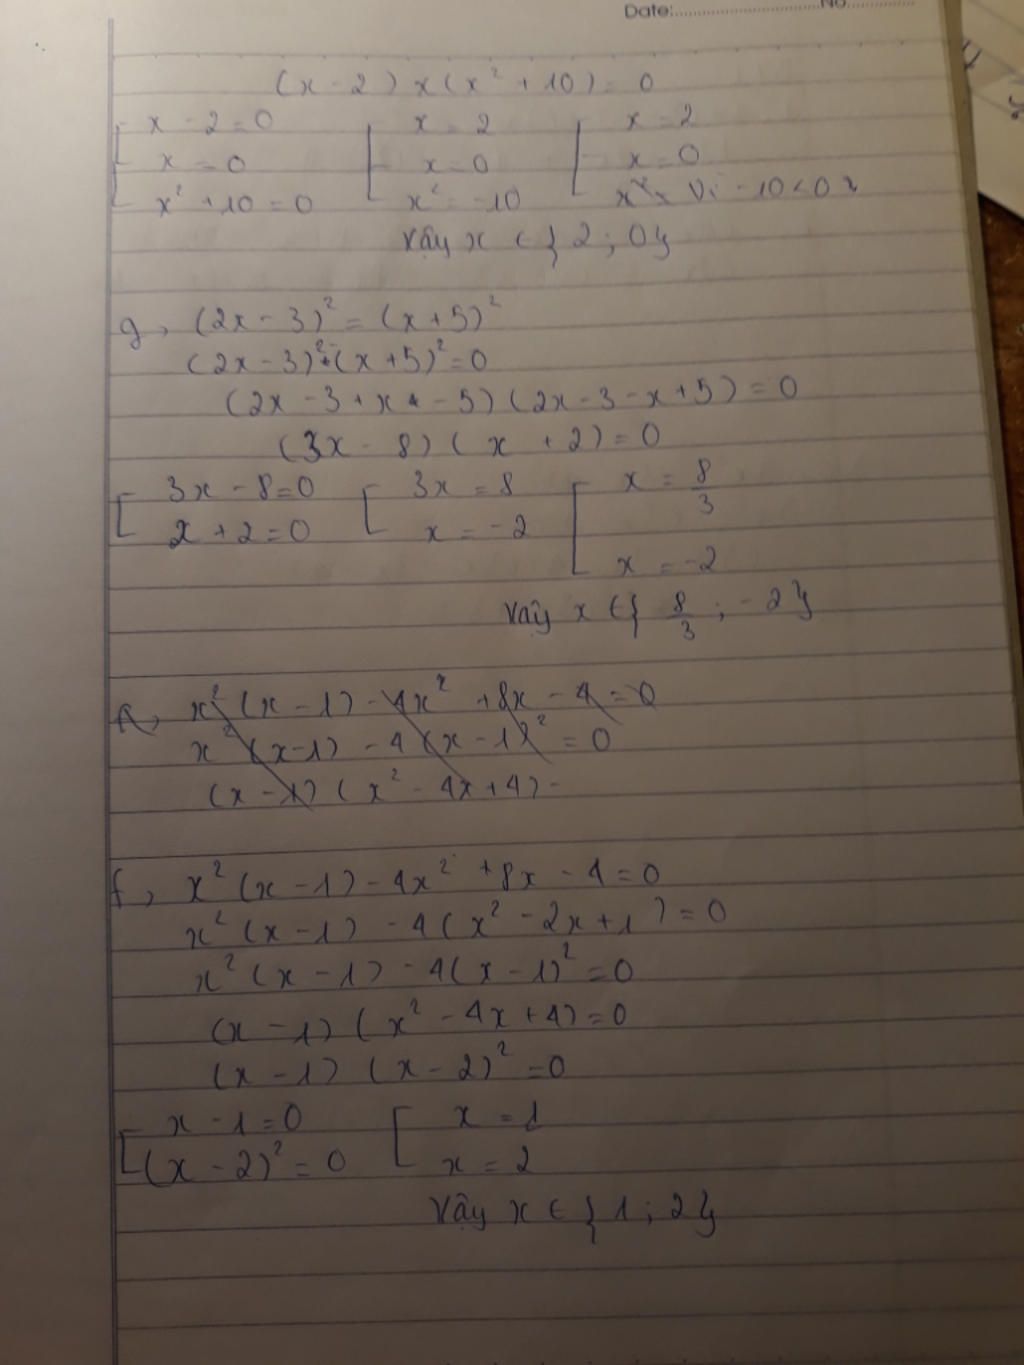 Date:..............................No...............
(x - 2) x (x² + 10) = 0
[ x - 2 = 0 [ x = 2 [ x = 2
x = 0 x = 0 x = 0
x² + 10 = 0 x² = -10 Vì -10 < 0
Vậy x ∈ { 2 ; 0 }
g, (2x - 3)² = (x + 5)²
(2x - 3)² - (x + 5)² = 0
(2x - 3 + x - 5) (2x - 3 - x + 5) = 0
(3x - 8) ( x + 2) = 0
[ 3x - 8 = 0 [ 3x = 8 [ x = 8/3
x + 2 = 0 x = -2
x = -2
Vậy x ∈ { 8/3 ; -2 }
x² (x - 1) - 4x² + 8x - 4 = 0
x² (x - 1) - 4 (x - 1)² = 0
(x - 1) (x² - 4x + 4) -
f, x² (x - 1) - 4x² + 8x - 4 = 0
x² (x - 1) - 4 (x² - 2x + 1) = 0
x² (x - 1) - 4(x - 1)² = 0
(x - 1) (x² - 4x + 4) = 0
(x - 1) (x - 2)² = 0
[ x - 1 = 0 [ x = 1
(x - 2)² = 0 x = 2
Vậy x ∈ { 1 ; 2 }